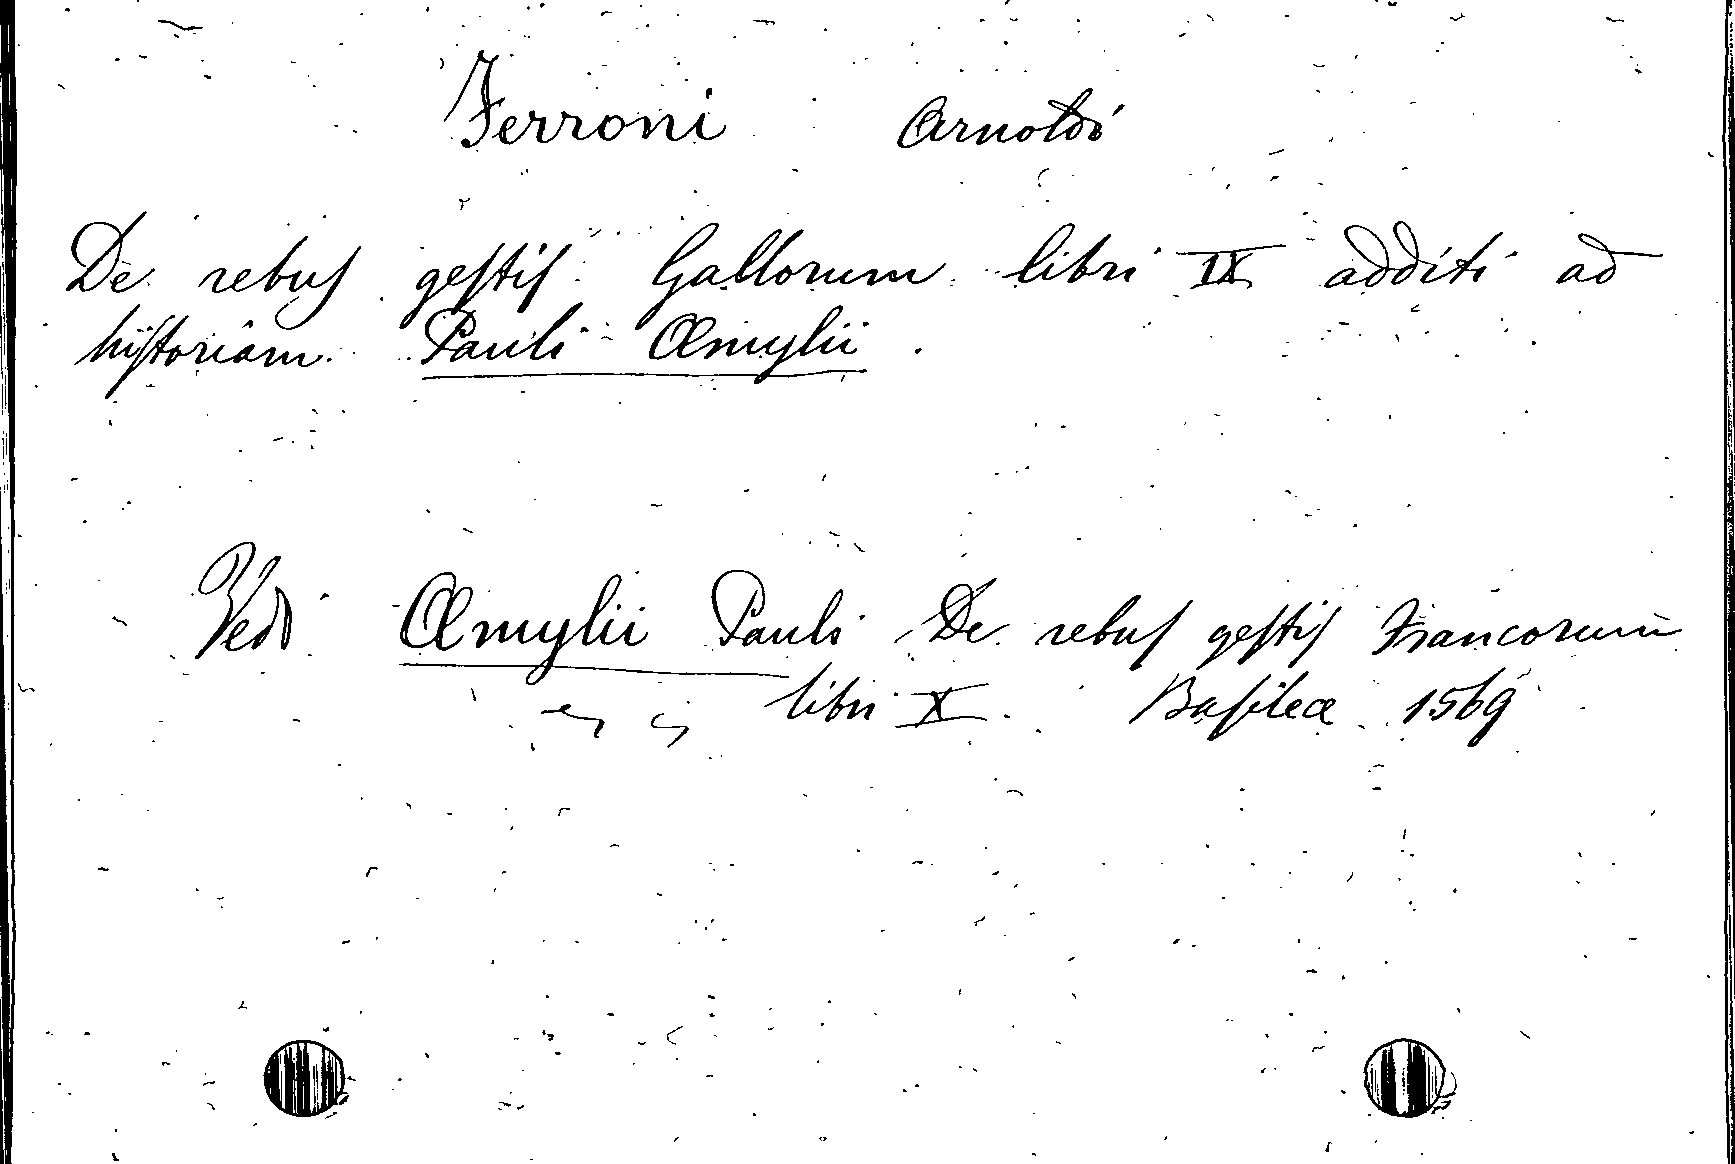 Ferroni Arnoldi
De rebuſ geſtiſ Gallorum libri IX additi ad
hiſtoriam Pauli Æmylii.
Vedi Æmylii Pauli De rebuſ geſtiſ Francorum
libri X. Baſileæ 1569